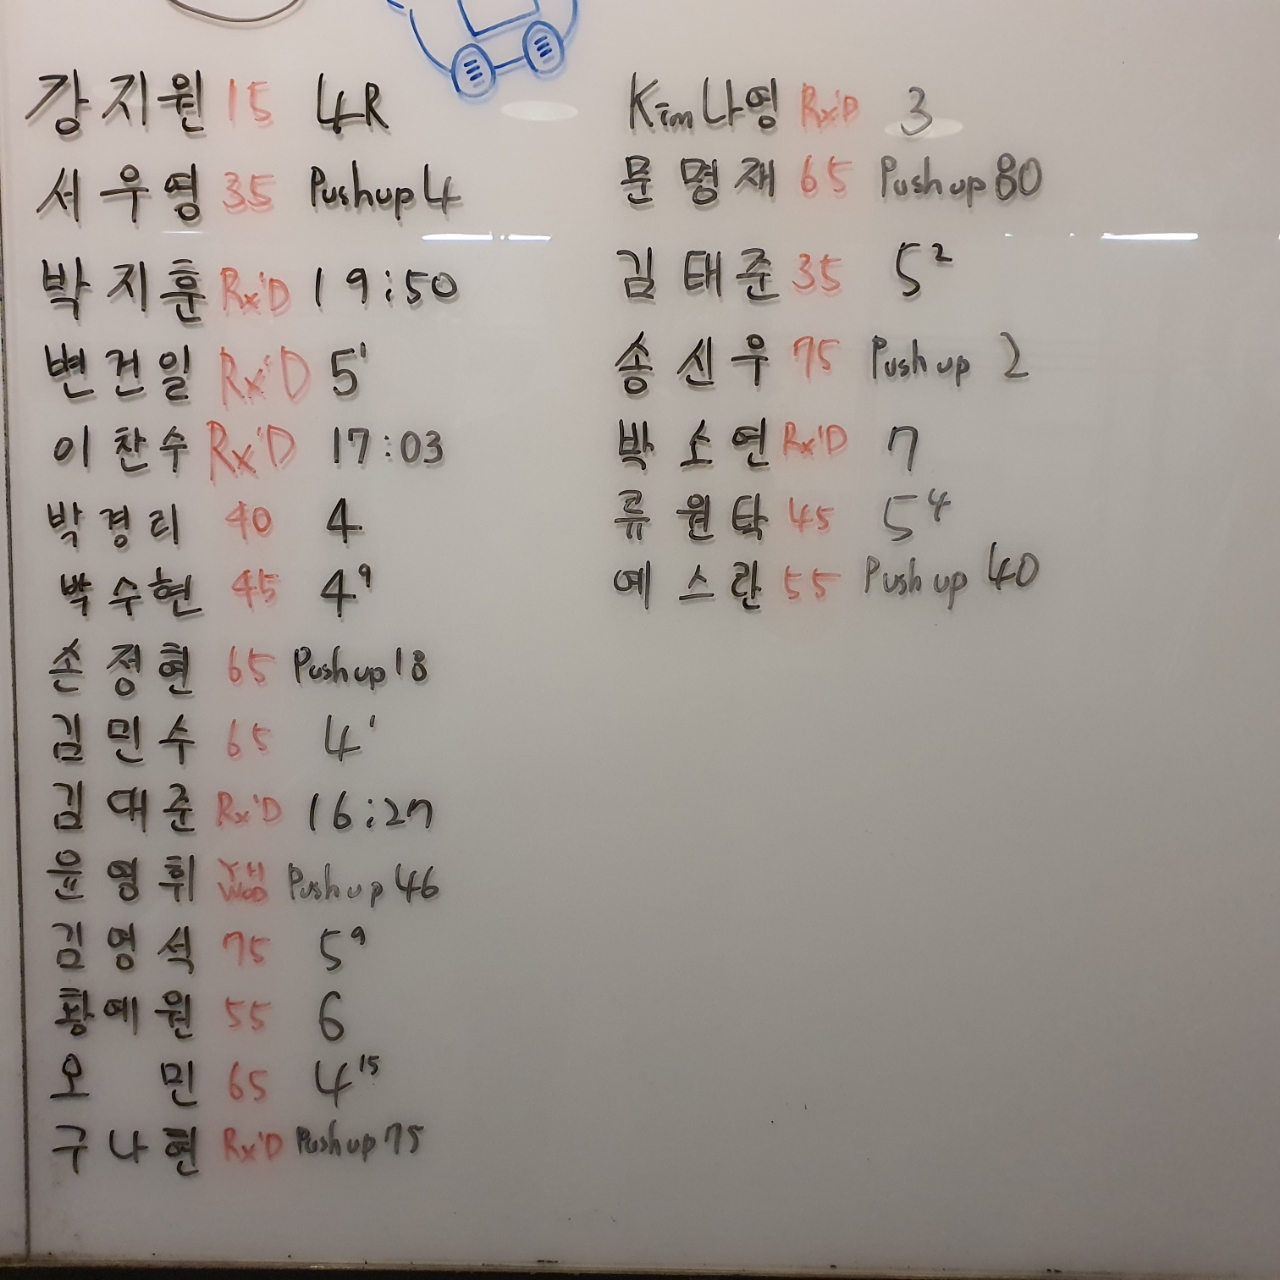 강지원 15 4R
서우영 35 Pushup 4
박지훈 Rx'D 19:50
변건일 Rx'D 5¹
이찬수 Rx'D 17:03
박경리 40 4
박수현 45 4⁹
손정현 65 Pushup 18
김민수 65 4¹
김대준 Rx'D 16:27
윤영휘 YH WOD Pushup 46
김영석 75 5⁹
황예원 55 6
오 민 65 4¹⁵
구나현 Rx'D Pushup 75
Kim나영 Rx'D 3
문명재 65 Pushup 80
김태준 35 5²
송신우 75 Pushup 2
박소연 Rx'D 7
류원탁 45 5⁴
예스란 55 Pushup 40